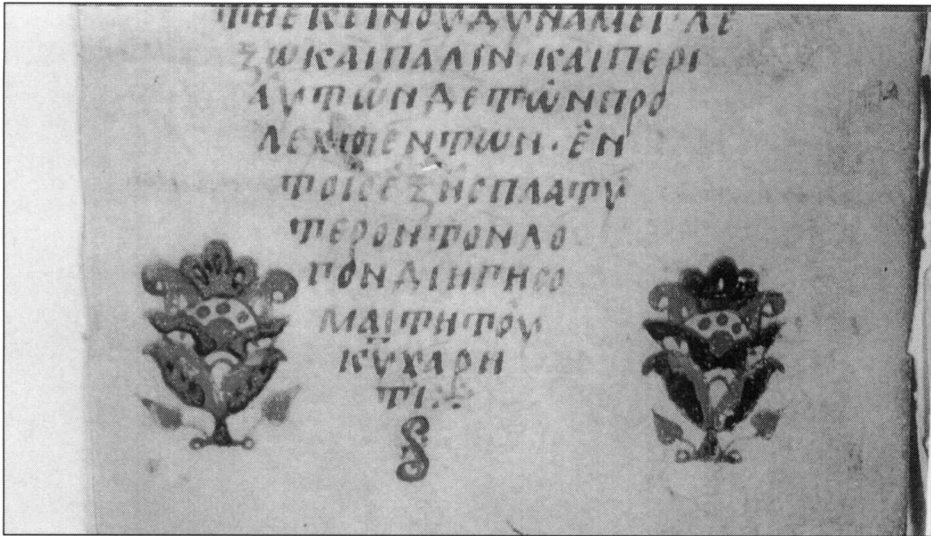 ΤΗΕΚΕΙΝΟΥΔΥΝΑΜΕΙ·ΛΕ
ΞΩΚΑΙΠΑΛΙΝ·ΚΑΙΠΕΡΙ
ΑΥΤΩΝΔΕΤΩΝΠΡΟ
ΛΕΧΘΕΝΤΩΝ·ΕΝ
ΤΟΙΣΕΞΗΣΠΛΑΤΥ
ΤΕΡΟΝΤΟΝΛΟ
ΓΟΝΔΙΗΓΗΣΟ
ΜΑΙΤΗΤΟΥ
ΚΥΧΑΡΗ
ΤΙ